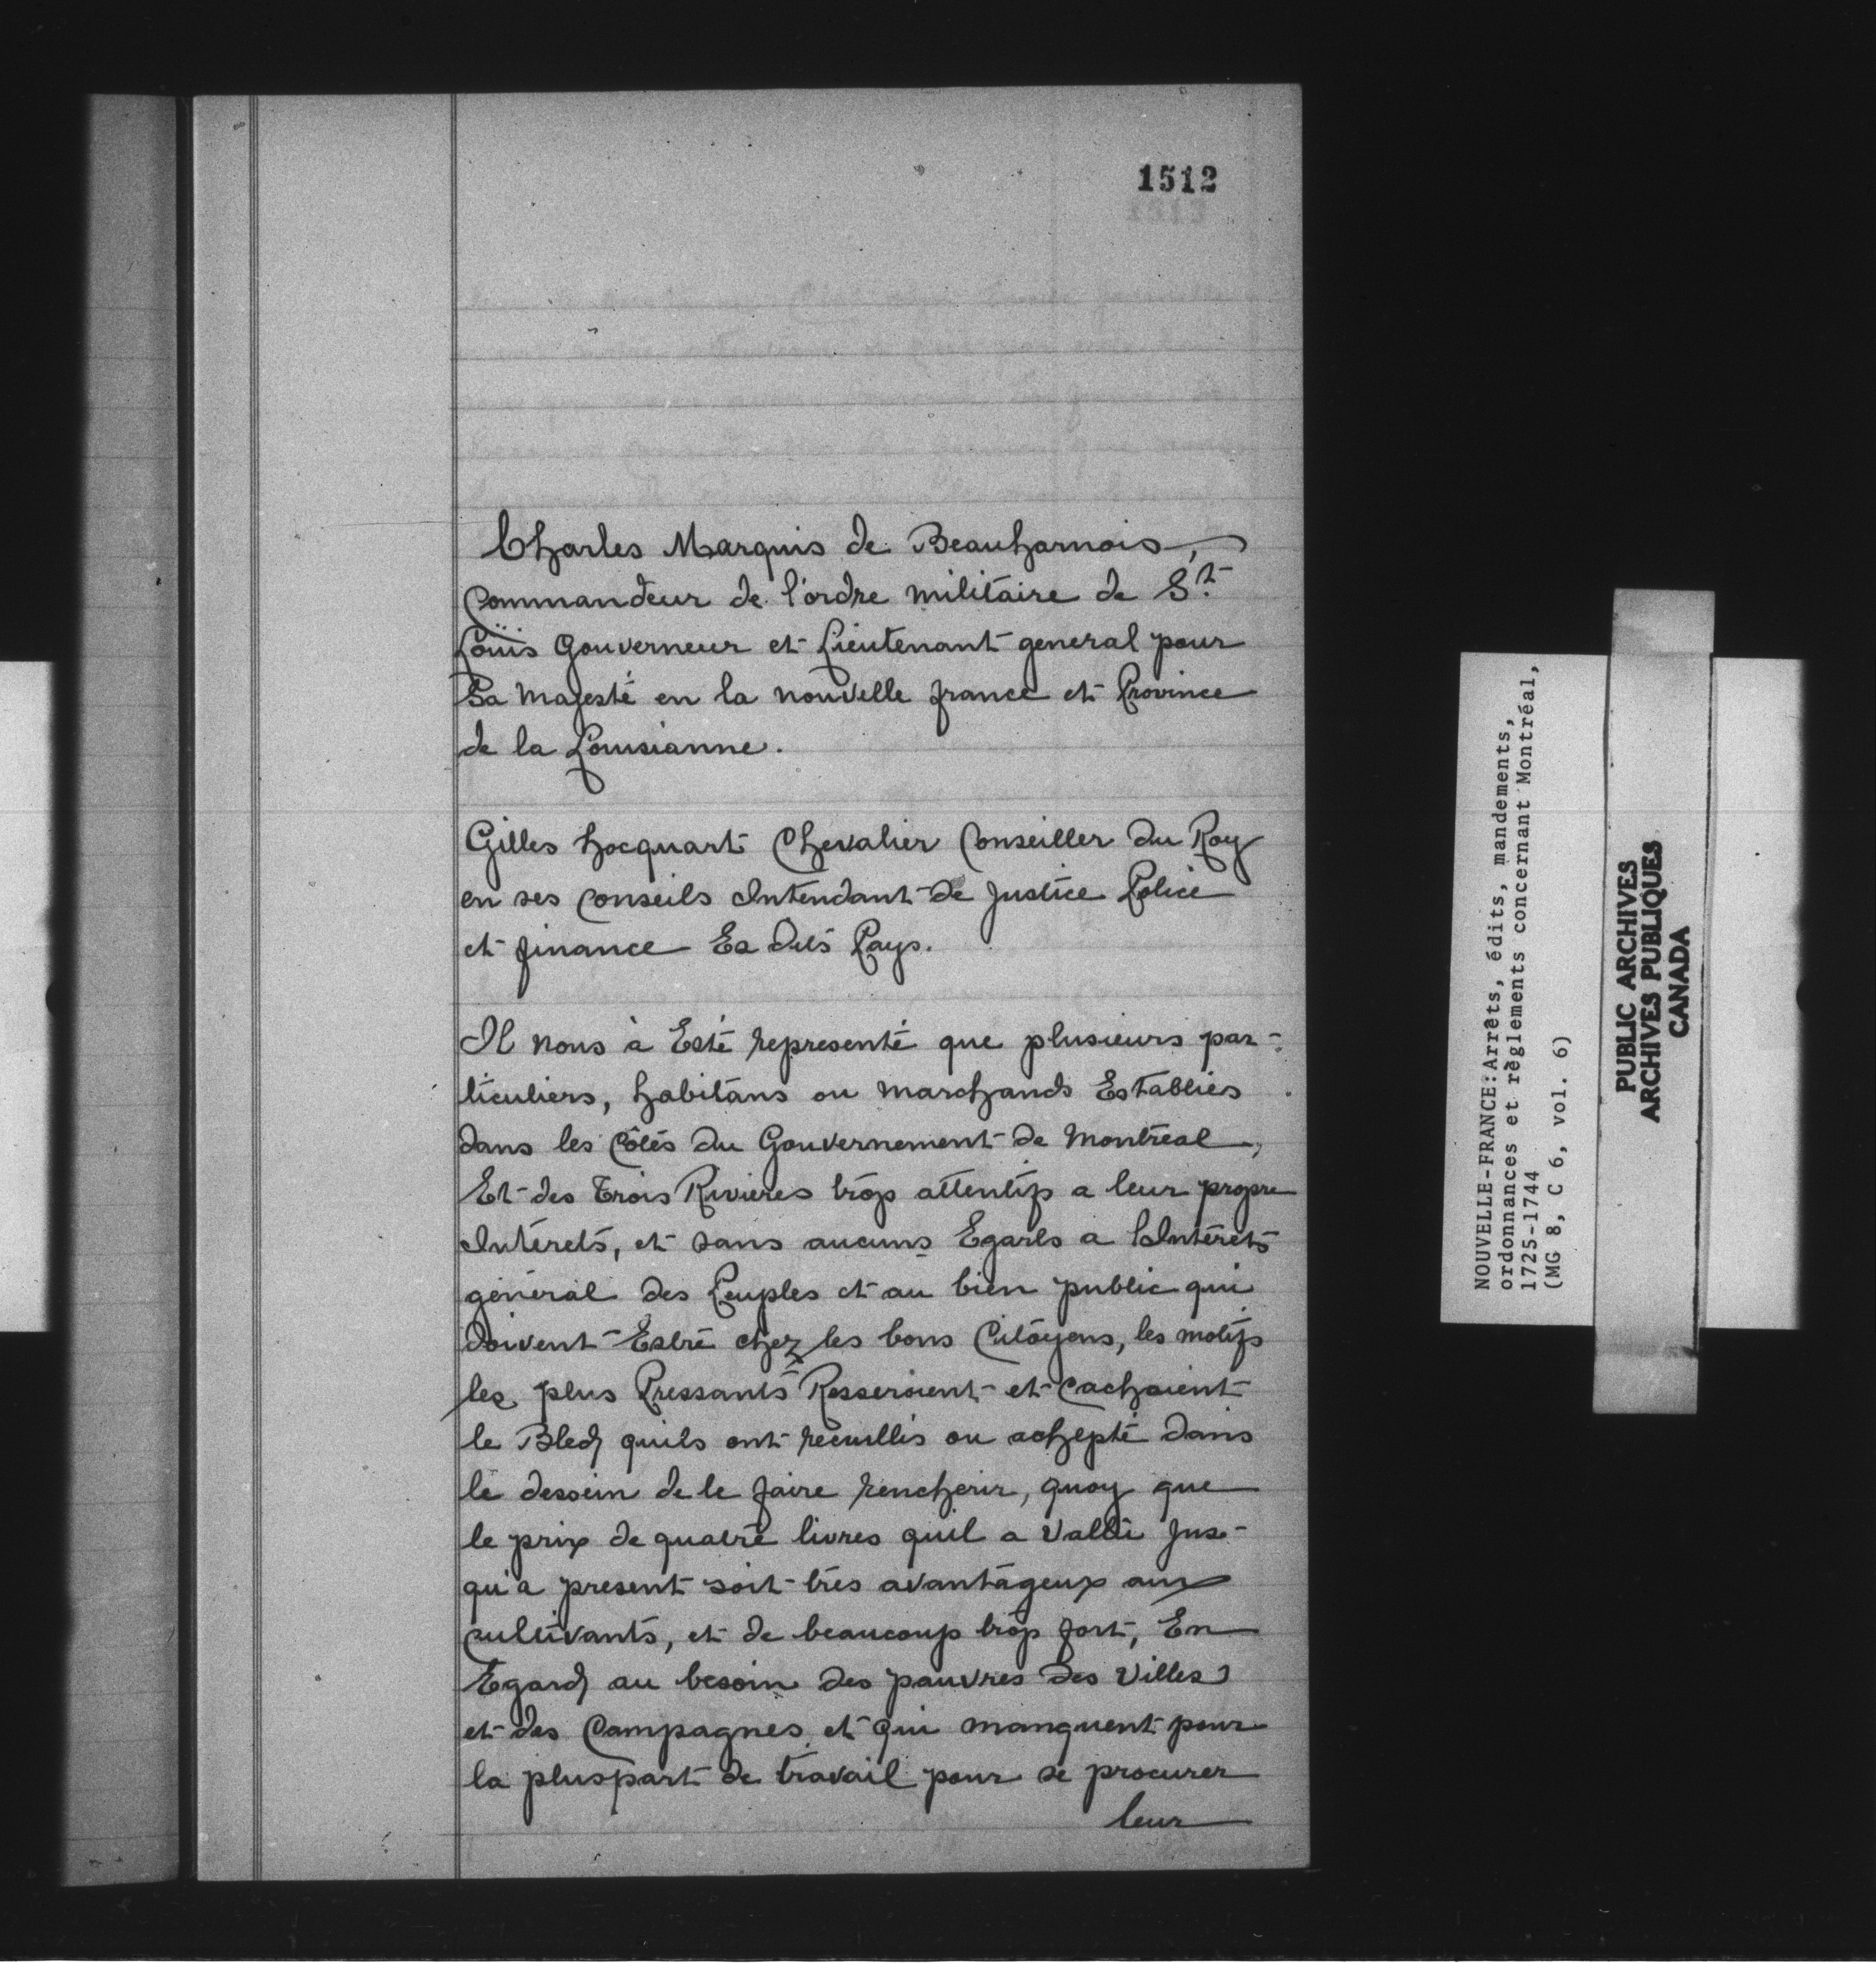 1512
Charles Marquis de Beauharnois,
Commandeur de l'ordre militaire de St
Loüis Gouverneur et Lieutenant general pour
Sa Majesté en la nouvelle france et Province
de la Louisianne.
Gilles hocquart Chevalier Conseiller du Roy
en ses Conseils Intendant de Justice Police
et finance Es dits Pays.
Il nous à Esté representé que plusieurs par-
ticuliers, habitans ou marchands Establies
dans les Côtés du Gouvernement de Montreal,
Et des Trois Rivieres trop attentifs a leur propre
Intérets, et sans aucuns Egards a l'Intérets
général des Peuples et au bien public qui
doivent Estre chez les bons Citoyens, les motifs
les plus Pressants Resseroient et Cachoient
le Bled quils ont recuillis ou achepté dans
le dessein de le faire rencherir, quoy que
le prix de quatre livres quil a Vallü Jus-
qu'a present soit très avantageux aux
cultivants, et de beaucoup trop fort, En
Egard au besoin des pauvres des Villes
et des Campagnes, et qui manquent pour
la pluspart de travail pour se procurer
leur
NOUVELLE-FRANCE:Arrêts, édits, mandements,
ordonnances et règlements concernant Montréal,
1725-1744
(MG 8, C 6, vol. 6)
PUBLIC ARCHIVES
ARCHIVES PUBLIQUES
CANADA